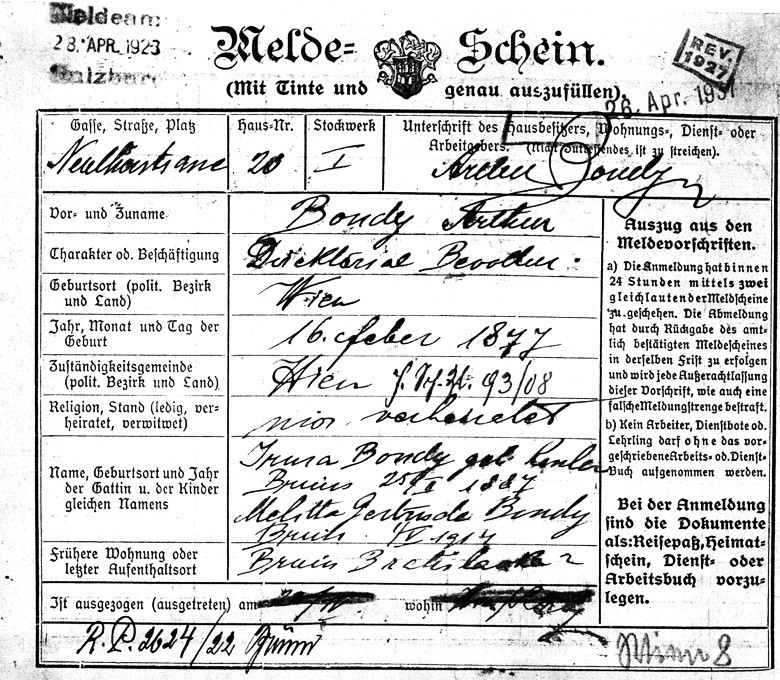 Meldeamt
28. APR. 1923
Salzburg
Melde-Schein.
(Mit Tinte und genau auszufüllen).
REV. 1927
26. Apr. 193
Gasse, Straße, Platz
Haus-Nr.
Stockwerk
Unterschrift des Hausbesitzers, Wohnungs-, Dienst- oder
Arbeitgebers. (Nicht Zutreffendes ist zu streichen).
20
I
Bondy
Vor- und Zuname
Bondy Arthur
Charakter od. Beschäftigung
Geburtsort (polit. Bezirk
und Land)
Wien
Jahr, Monat und Tag der
Geburt
16. feber 1877
Zuständigkeitsgemeinde
(polit. Bezirk und Land)
Wien 93/08
Religion, Stand (ledig, ver-
heiratet, verwitwet)
verheiratet
Name, Geburtsort und Jahr
der Gattin u. der Kinder
gleichen Namens
Irma Bondy geb.
1887
Melitta Gertrude Bondy
Frühere Wohnung oder
letzter Aufenthaltsort
Auszug aus den
Meldevorschriften.
a) Die Anmeldung hat binnen
24 Stunden mittels zwei
gleichlautender Meldscheine
zu geschehen. Die Abmeldung
hat durch Rückgabe des amt-
lich bestätigten Meldescheines
in derselben Frist zu erfolgen
und wird jede Außerachtlassung
dieser Vorschrift, wie auch eine
falsche Meldung strenge bestraft.
b) Kein Arbeiter, Dienstbote od.
Lehrling darf ohne das vor-
geschriebene Arbeits- od. Dienst-
Buch aufgenommen werden.
Bei der Anmeldung
sind die Dokumente
als: Reisepaß, Heimat-
schein, Dienst- oder
Arbeitsbuch vorzu-
legen.
Ist ausgezogen (ausgetreten) am wohin
R. P. 2624/22 Brünn
Wien 8